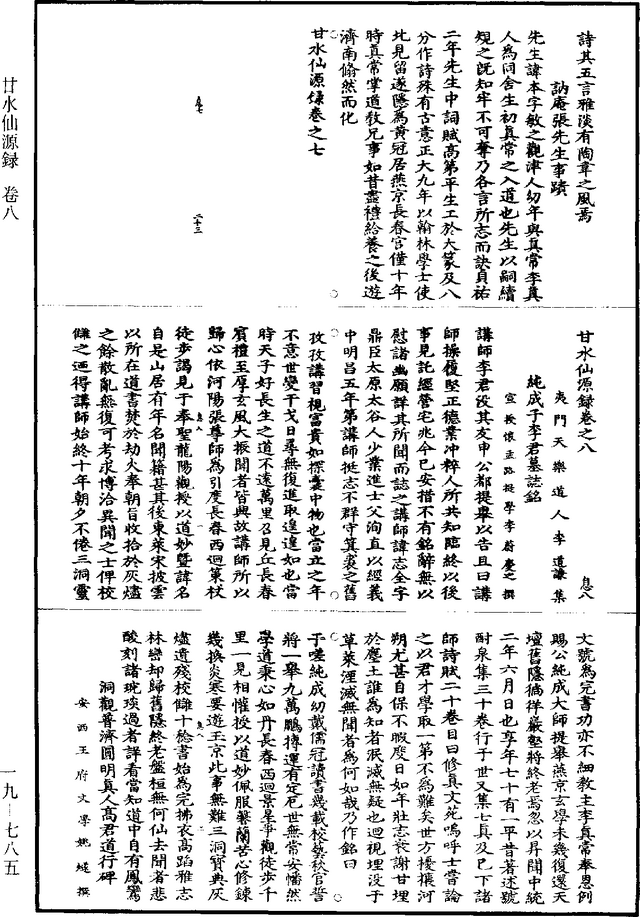 詩其五言雅淡有陶韋之風焉
訥庵張先生事蹟
先生諱本字敏之觀津人幼年與真常李真
人爲同舍生初真常之入道也先生以嗣續
規之既知牢不可奪乃各言所志而訣貞祐
二年先生中詞賦高第平生工於大篆及八
分作詩殊有古意正大九年以翰林學士使
北見留遂隱爲黃冠居燕京長春宮僅十年
時真常掌道教兄事如昔盡禮給養之後遊
濟南翛然而化
甘水仙源錄卷之七
二十三
甘水仙源錄卷之八
息八
夷門天樂道人李道謙集
純成子李君墓誌銘
宣授懷孟路提學李蔚慶之撰
講師李君没其友申公都提舉以告且曰講
師操履堅正德業冲粹人所共知臨終以後
事見託經營宅兆今已安措不有銘辭無以
慰諸幽願詳其所聞而誌之講師諱志全字
鼎臣太原太谷人少業進士父洵直以經義
中明昌五年第講師挺志不群守箕裘之舊
孜孜講習視富貴如探囊中物也當立之年
不意世變干戈日尋無復進取遑遑如也當
時天子好長生之道不遠萬里召見丘長春
賓禮至厚玄風大振聞者皆興故講師所以
歸心依河陽張尊師爲引度長春西迴策杖
徒步謁見于奉聖龍陽觀授以道妙暨諱名
自是山居有年名聞籍甚其後東萊宋披雲
以所在道書焚於劫火奉朝旨收拾於灰燼
之餘散亂無復可考求博洽異聞之士俾校
讎之迺得講師始終十年朝夕不倦三洞靈
文號爲完書功亦不細教主李真常奉恩例
賜公純成大師提舉燕京玄學未幾復還天
壇舊隱徜徉巖壑將終老焉忽以昇聞中統
二年六月日也享年七十有一平昔著述號
酎泉集三十卷行于世又集七真及已下諸
師詩賦二十卷目曰修真文苑嗚呼士嘗論
之以君才學取一第不爲難矣世方擾攘河
朔尤甚自保不暇度日如年壯志衰謝甘埋
於塵土誰爲知者泯滅無疑也迴視埋没于
草萊湮滅無聞者爲何如哉乃作銘曰
于嗟純成幼戴儒冠讀書幾載校藝秋官誓
將一舉九萬鵬摶運有定厄世無常安幡然
學道秉心如丹長春西迴景星爭觀徒步千
里一見相懽授以道妙佩服縶蘭苦心修鍊
幾換炎寒要遊玉京此事無難三洞寶典灰
燼遺殘校讎十稔書始爲完拂衣高蹈雅志
林巒却歸舊隱終老盤桓無何仙去聞者悲
酸刻諸琬琰過者詳看當知道中自有鳳鸞
洞觀普濟圓明真人高君道行碑
安西王府文學姚燧撰
甘水仙源録 卷八
一九—七八五